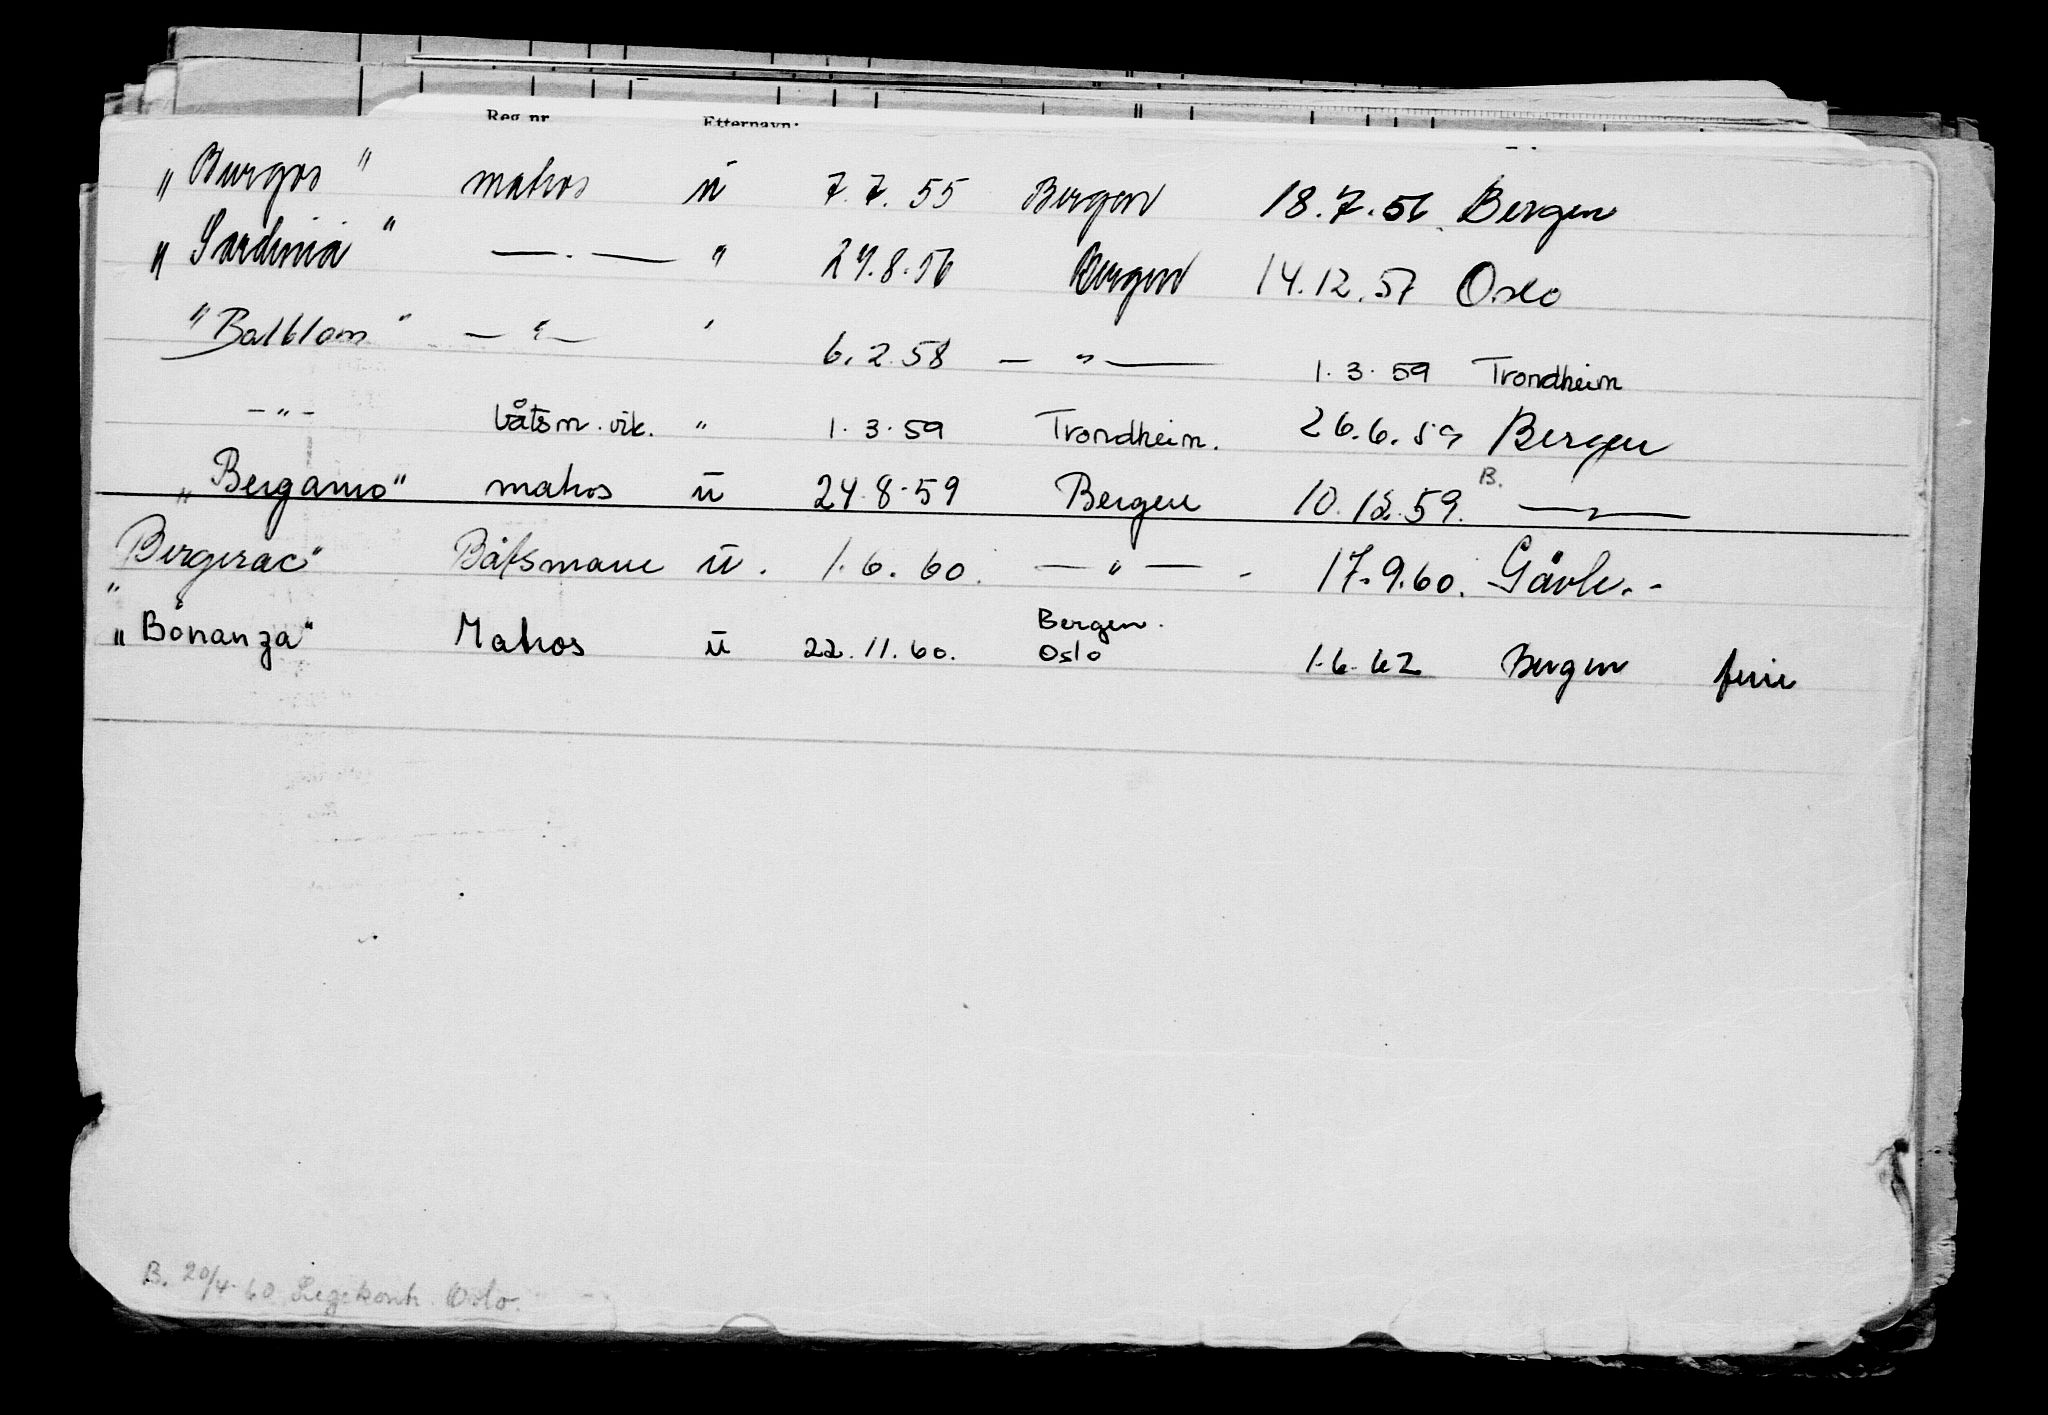 Reg. nr. Etternavn:
„Burgos" matros ü 7.7.55 Bergen 18.7.56 Bergen
„Sardinia" —.— " 27.8.56 Bergen 14.12.57 Oslo
"Balblom" —"— " 6.2.58 —"— 1.3.59 Trondheim
-"- båtsm. vik. " 1.3.59 Trondheim. 26.6.59 Bergen
„Bergamo" matros ü 24.8.59 Bergen 10.12.59. B. —"—
„Bergerac" Båtsmann ü. 1.6.60. —"— - 17.9.60. Gävle.-
„Bonanza" Matros ü 22.11.60. Bergen. Oslo 1.6.62 Bergen ferie
B. 20/4-60 Legekontr. Oslo.